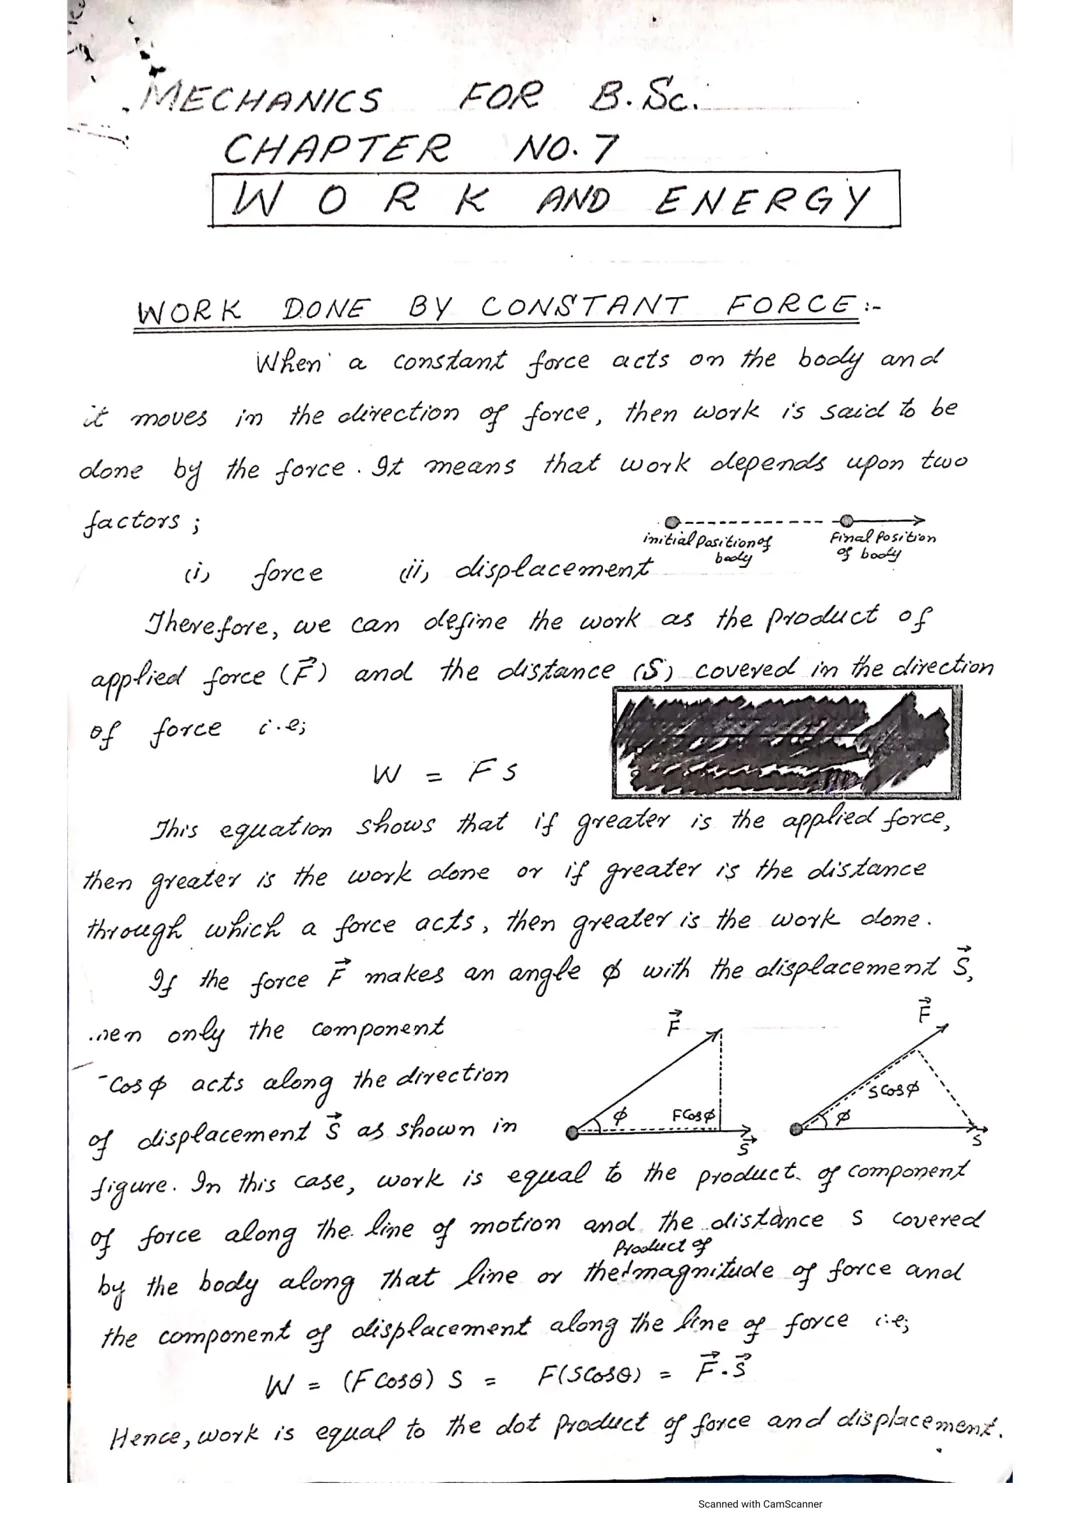 MECHANICS FOR B.Sc.
CHAPTER NO. 7
WORK AND ENERGY
WORK DONE BY CONSTANT FORCE:-
When a constant force acts on the body and
it moves in the direction of force, then work is said to be
done by the force. It means that work depends upon two
factors;
initial Position of body
Final Position of body
(i) force (ii) displacement
Therefore, we can define the work as the product of
applied force (F⃗) and the distance (S) covered in the direction
of force i.e;
W = Fs
This equation shows that if greater is the applied force,
then greater is the work done or if greater is the distance
through which a force acts, then greater is the work done.
If the force F⃗ makes an angle ϕ with the displacement S⃗,
only the component
Cosϕ acts along the direction
of displacement S⃗ as shown in
F⃗ ϕ FCosϕ S⃗
F⃗ SCosϕ ϕ S⃗
figure. In this case, work is equal to the product of component
of force along the line of motion and the distance S covered
Product of
by the body along that line or the magnitude of force and
the component of displacement along the line of force i.e;
W = (F Cosθ) S = F(SCosθ) = F⃗.S⃗
Hence, work is equal to the dot Product of force and displacement.
Scanned with CamScanner